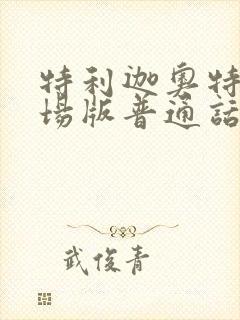 特利迦奥特
场版普通话
武俊青